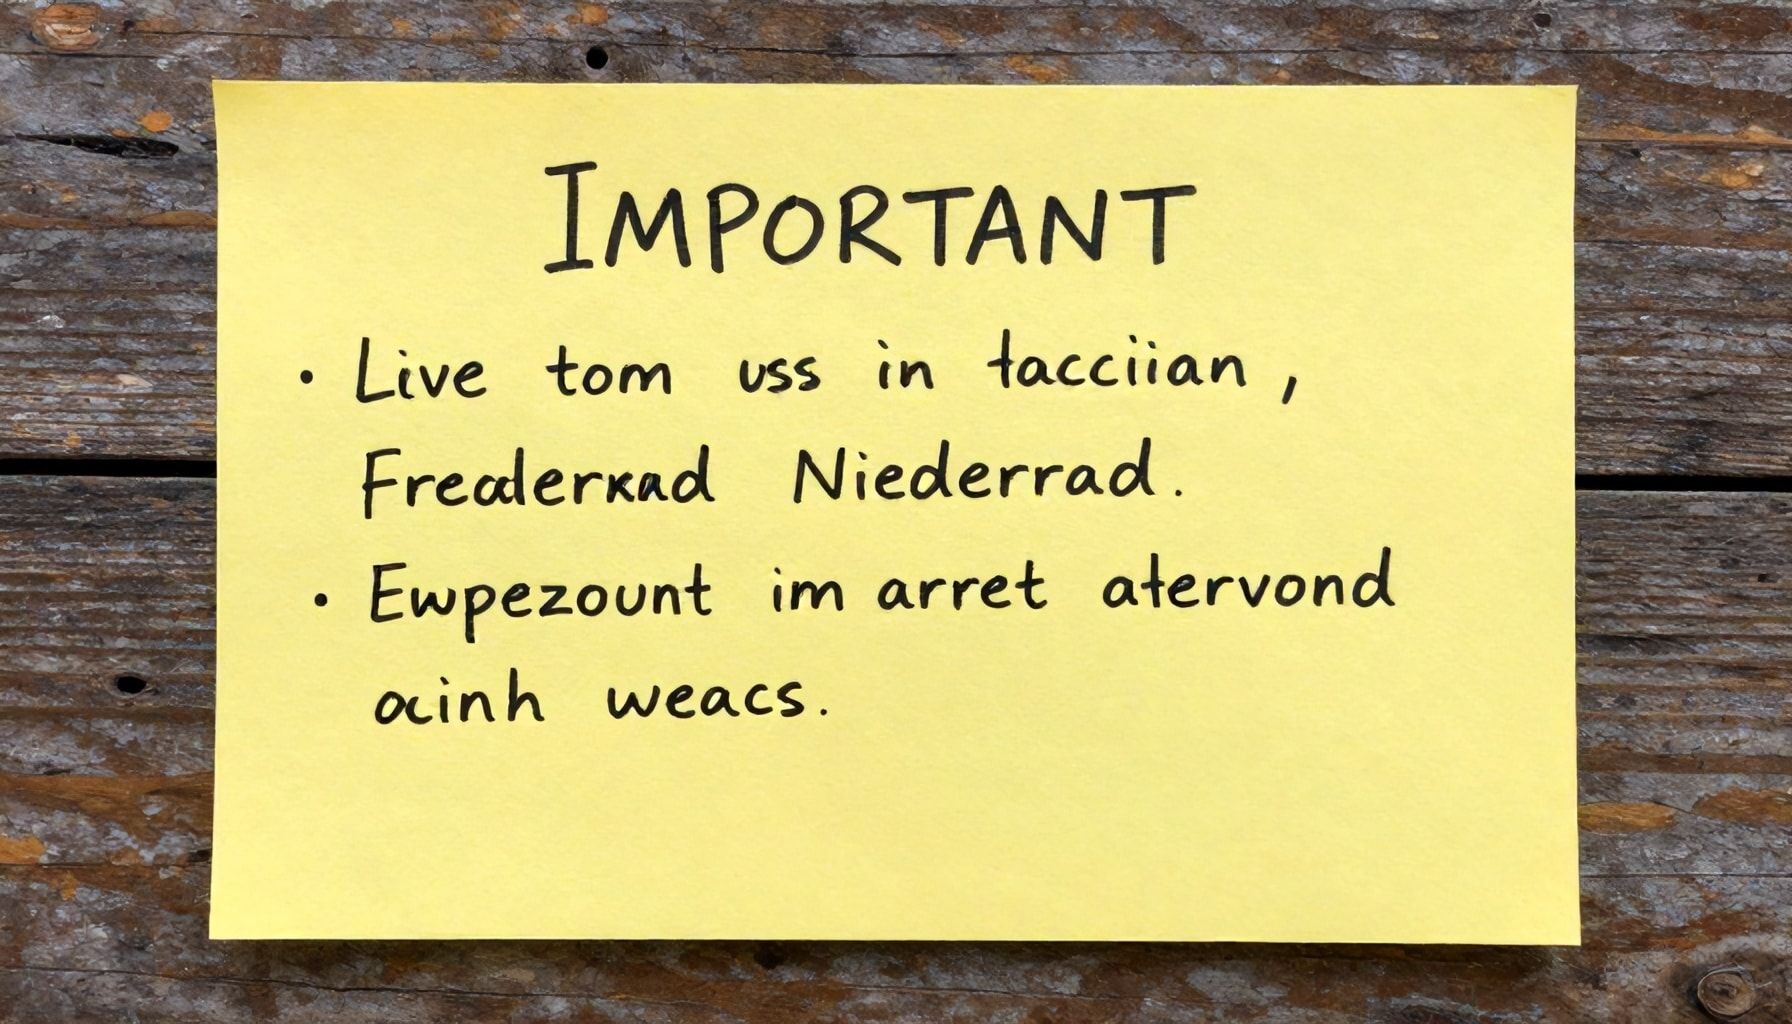 IMPORTANT
• Live tom uss in tacciian,
Frealerkad Niederrad.
• Ewpezount im arret atervond
acinh weacs.